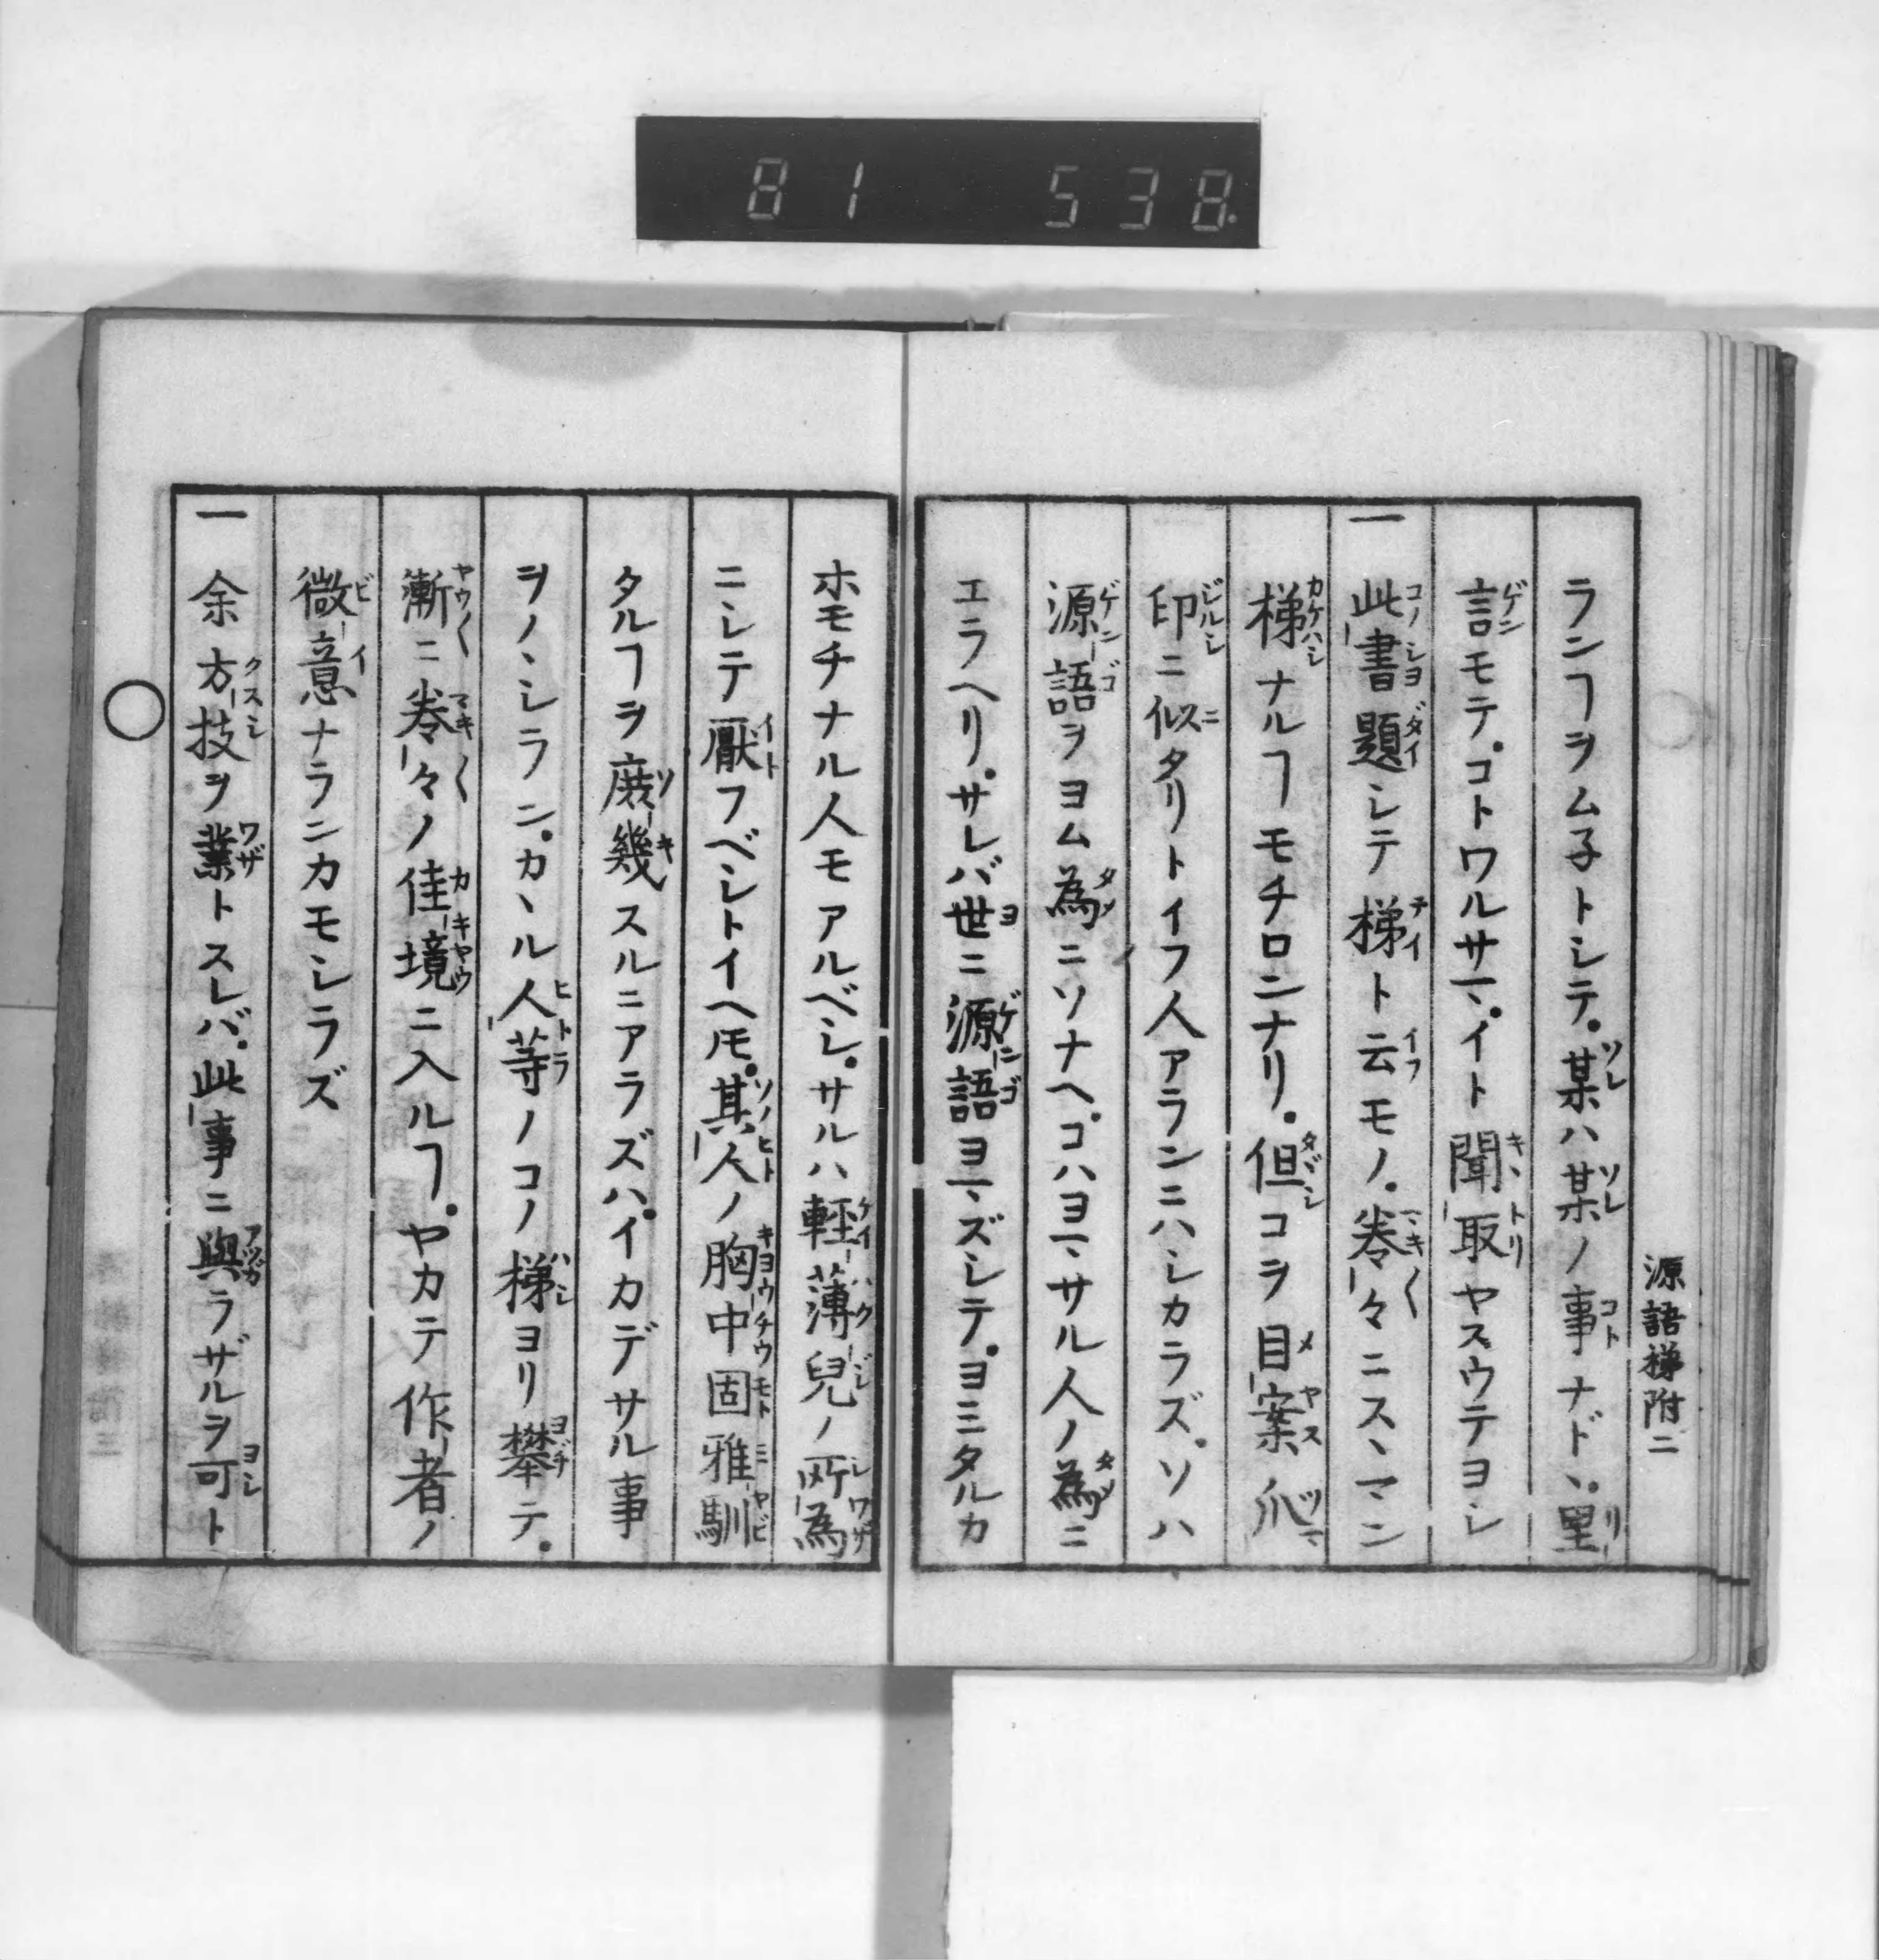 81 538
源語梯附二
ランヿヲムネトシテ。某ハ某ノ事ナドヽ。里
言モテ。コトワルサマヽ。イト聞取ヤスウテヨシ
一 此書題シテ梯ト云モノ。巻々ニスヽマン
梯ナルヿモチロンナリ。但コヲ目案爪
印ニ似タリトイフ人アランニハシカラズ。ソハ
源語ヲヨム為ニソナヘ。コハヨマヽサル人ノ為ニ
エラヘリ。サレバ世ニ源語ヨマヽズシテ。ヨミタルカ
ホモチナル人モアルベシ。サルハ輕薄兒ノ所為
ニシテ厭フベシトイヘ𪜈。其人ノ胸中固雅馴
タルヿヲ庶幾スルニアラズハ。イカデサル事
ヲノヽシラン。カヽル人等ノコノ梯ヨリ攀テ。
漸ニ巻々ノ佳境ニ入ルヿ。ヤカテ作者ノ
微意ナランカモシラズ
一 余方技ヲ業トスレバ。此事ニ與ラザルヲ可ト